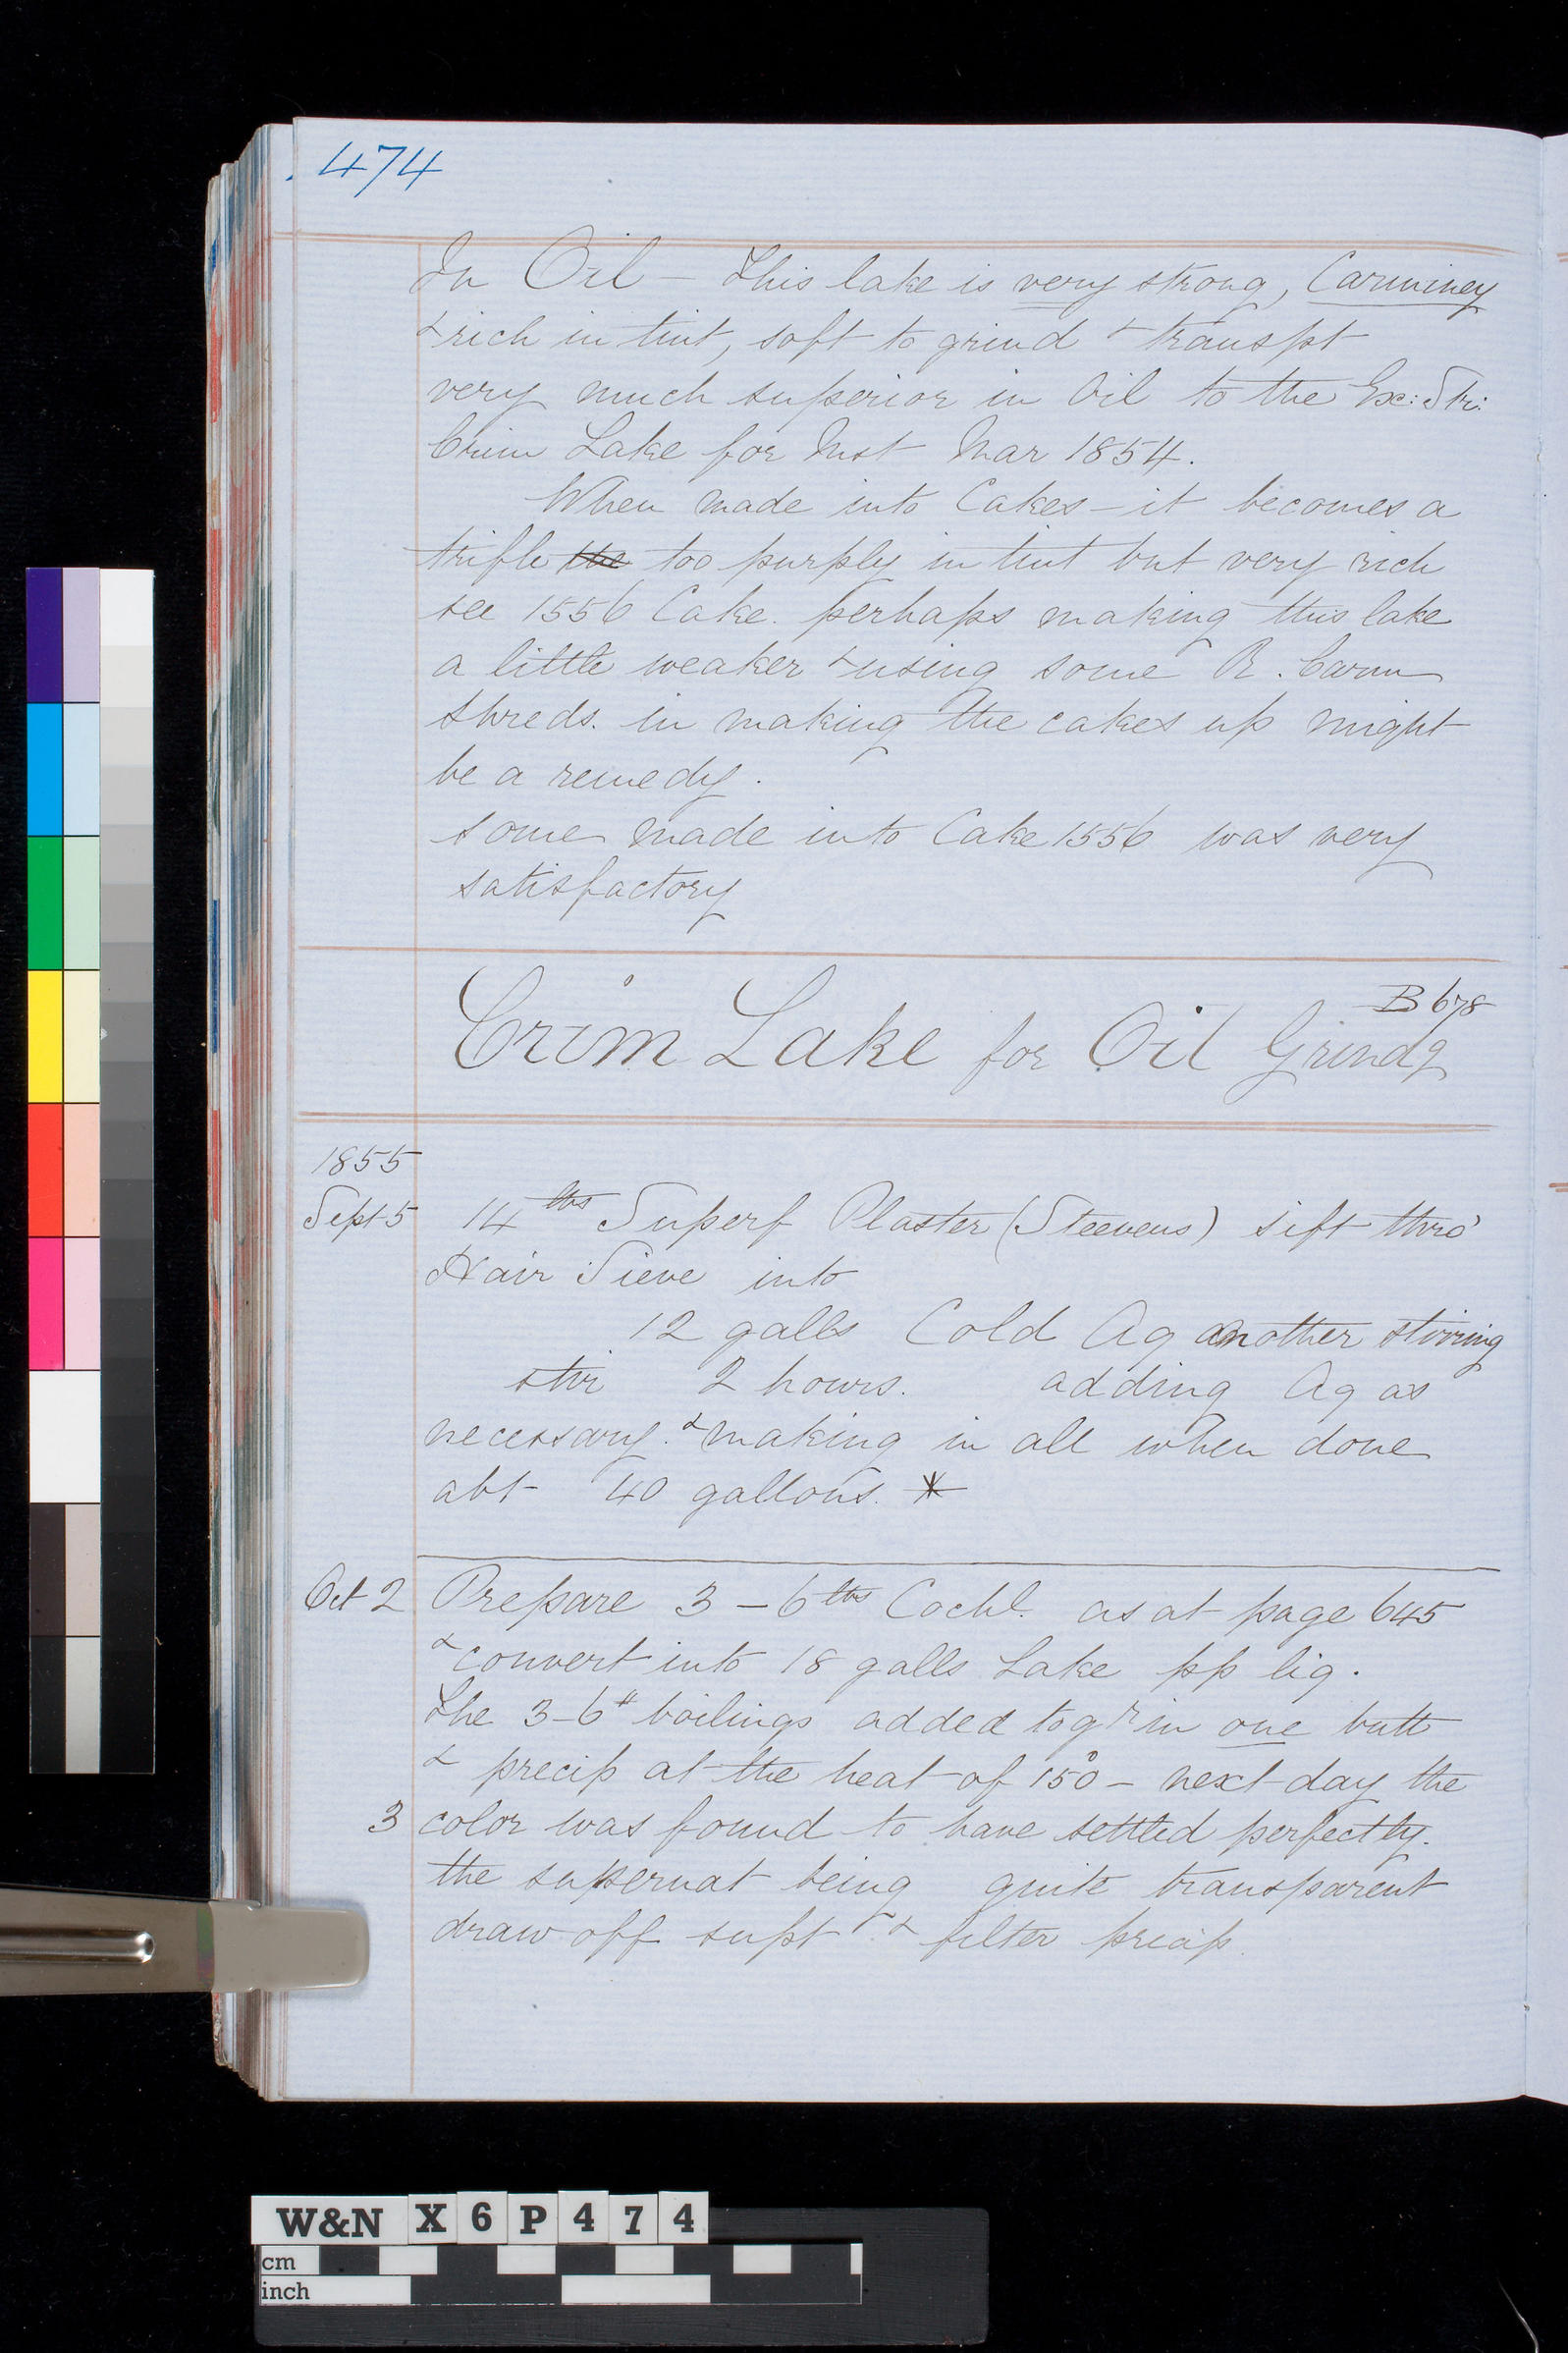 474
In Oil – This lake is very strong, Carminey
& rich in tint, soft to grind & transpt
very much superior in Oil to the Exc: Str:
Crim Lake for Mst Mar 1854.
When made into Cakes – it becomes a
trifle the too purply in tint but very rich
see 1556 Cake. perhaps making this lake
a little weaker & using some R. Carm
shreds. in making the cakes up might
be a remedy.
some made into Cake 1556 was very
satisfactory
B 678
Crim Lake for Oil Grindg
1855
Sept 5 14 lbs Superf Plaster (Steevens) sift thro'
Hair Sieve into
12 galls Cold Aq another stirring
stir 2 hours. adding Aq as
necessary. & making in all when done
abt 40 gallons. *
Oct 2 Prepare 3 – 6 lbs Cochl. as at page 645
& convert into 18 galls Lake pp liq.
The 3–6# boilings added togr in one butt
& precip at the heat of 150° – next day the
3 color was found to have settled perfectly.
the supernat being quite transparent
draw off supt & filter precip.
W&N X 6 P 4 7 4
cm
inch